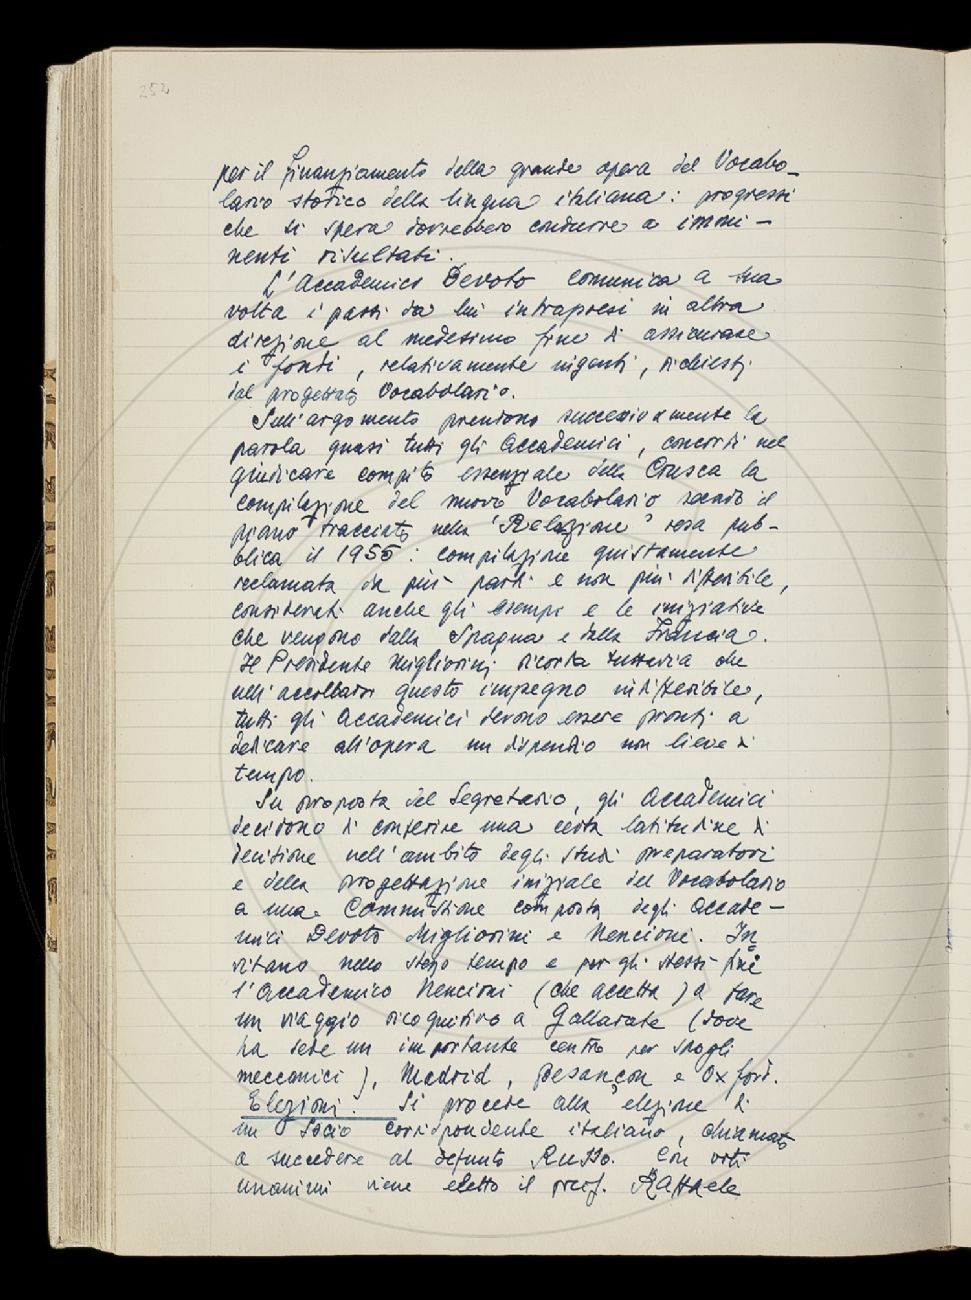 252
per il finanziamento della grande opera del Vocabo-
lario storico della lingua italiana: progressi
che si spera dovrebbero condurre a immi-
nenti risultati.
L'Accademico Devoto comunica a sua
volta i passi da lui intrapresi in altra
direzione al medesimo fine di assicurare
i fondi, relativamente ingenti, richiesti
dal progettato Vocabolario.
Sull'argomento prendono successivamente la
parola quasi tutti gli Accademici, concordi nel
giudicare compito essenziale della Crusca la
compilazione del nuovo Vocabolario secondo il
piano tracciato nella "Relazione" resa pub-
blica il 1955: compilazione giustamente
reclamata da più parti e non più differibile,
considerati anche gli esempi e le iniziative
che vengono dalla Spagna e dalla Francia.
Il Presidente Migliorini ricorda tuttavia che
nell'accollarsi questo impegno indifferibile,
tutti gli Accademici devono essere pronti a
dedicare all'opera un dispendio non lieve di
tempo.
Su proposta del Segretario, gli Accademici
decidono di conferire una certa latitudine di
decisione nell'ambito degli studi preparatori
e della progettazione iniziale del Vocabolario
a una Commissione composta degli Accade-
mici Devoto Migliorini e Nencioni. In
vitano nello stesso tempo e per gli stessi fini
l'Accademico Nencioni (che accetta) a fare
un viaggio ricognitivo a Gallarate (dove
ha sede un importante centro per spogli
meccanici), Madrid, Besançon e Oxford.
Elezioni. Si procede alla elezione di
un Socio corrispondente italiano, chiamato
a succedere al defunto Russo. Con voti
unanimi viene eletto il prof. Raffaele